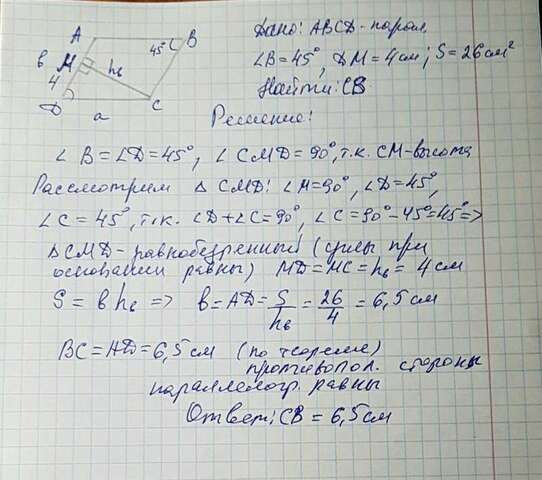 A
B
45°
в
М
4
hв
D
a
C
Дано: ABCD - парал.
∠B=45°, DM=4см; S=26см²
Найти: CB
Решение:
∠B=∠D=45°, ∠CMD=90°, т.к. CM-высота
Рассмотрим △CMD: ∠M=90°, ∠D=45°,
∠C=45°, т.к. ∠D+∠C=90°, ∠C=90°-45°=45° =>
△CMD - равнобедренный (углы при
основании равны) MD=MC=hв=4см
S=в hв => в=AD=S/hв=26/4=6,5см
BC=AD=6,5см (по теореме)
противопол. стороны
параллелогр. равны
Ответ: CB=6,5см